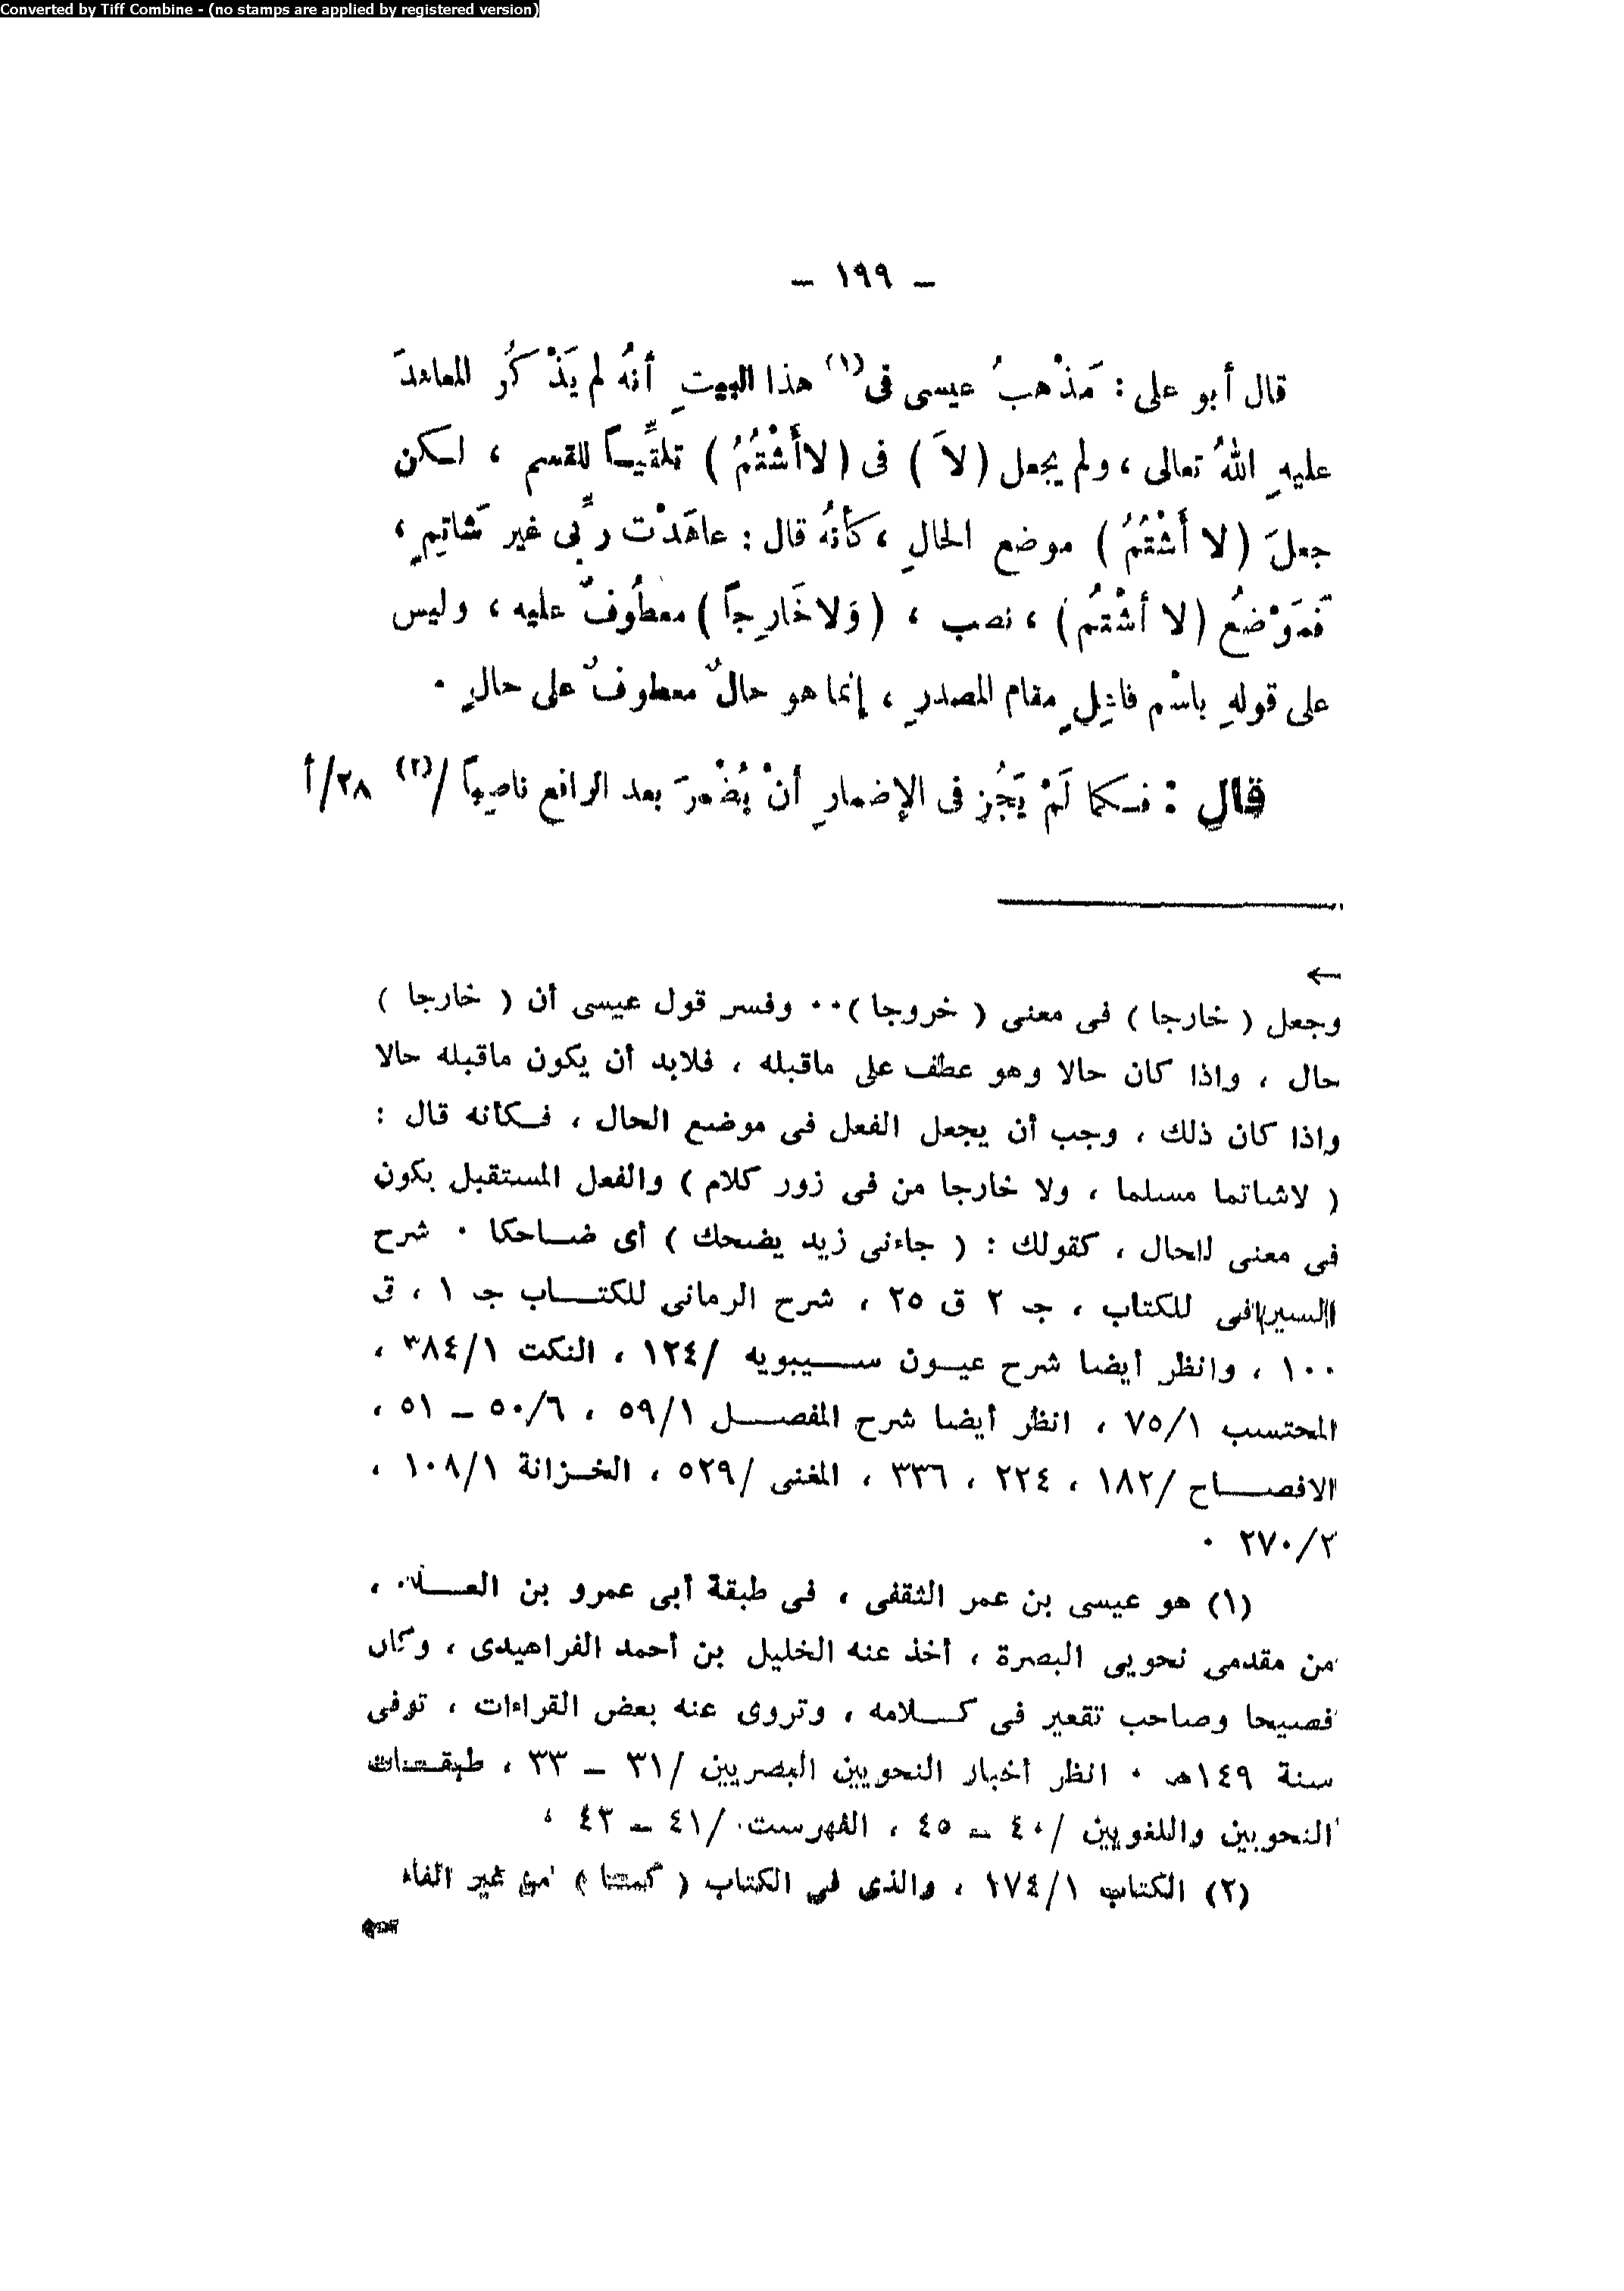 Converted by Tiff Combine - (no stamps are applied by registered version)
ـ ١٩٩ ـ
قال أبو على : مَذْهبُ عيسى فى(١) هذا البيتِ أنهُ لم يَذْكُر المعاهدَ
عليهِ اللهُ تعالى ، ولم يجعل (لاَ) فى (لا أَشْتُمُ) تلقِّيًا للقسم ، لكن
جعلَ (لا أَشْتُمُ) موضع الحالِ ، كأنهُ قال : عاهَدْت ربِّى غير شَاتِمٍ ،
فَمَوْضعُ (لا أشْتمُ) ، نصب ، (وَلا خَارِجاً) معطُوفٌ عليه ، وليس
على قولهِ باسْم فاعِلٍ مقام المصدرِ ، إنما هو حالٌ معطوفٌ على حالٍ .
قال : فكما لَمْ يَجُزِ فى الإضمارِ أنْ يُضْمَرَ بعد الرافع ناصباً /(٢) ٢٨/أ
←
وجعل ( خارجا ) فى معنى ( خروجا ) ٠٠ وفسر قول عيسى أن ( خارجا )
حال ، واذا كان حالا وهو عطف على ماقبله ، فلابد أن يكون ماقبله حالا
واذا كان ذلك ، وجب أن يجعل الفعل فى موضع الحال ، فكأنه قال :
( لاشاتما مسلما ، ولا خارجا من فى زور كلام ) والفعل المستقبل يكون
فى معنى الحال ، كقولك : ( جاءنى زيد يضحك ) أى ضاحكا ٠ شرح
السيرافى للكتاب ، جـ ٢ ق ٢٥ ، شرح الرمانى للكتاب جـ ١ ، ق
١٠٠ ، وانظر أيضا شرح عيون سيبويه /١٢٤ ، النكت ٣٨٤/١ ،
المحتسب ٧٥/١ ، انظر أيضا شرح المفصل ٥٩/١ ، ٥٠/٦ ـ ٥١ ،
الافصاح /١٨٢ ، ٢٢٤ ، ٣٣٦ ، المغنى /٥٢٩ ، الخزانة ١٠٨/١ ،
٢٧٠/٢ ٠
(١) هو عيسى بن عمر الثقفى ، فى طبقة أبى عمرو بن العلاء ،
من مقدمى نحويى البصرة ، أخذ عنه الخليل بن أحمد الفراهيدى ، وكان
فصيحا وصاحب تقعير فى كلامه ، وتروى عنه بعض القراءات ، توفى
سنة ١٤٩هـ ٠ انظر أخبار النحويين البصريين /٣١ ـ ٣٣ ، طبقات
النحويين واللغويين /٤٠ ـ ٤٥ ، الفهرست /٤١ ـ ٤٢ ،
(٢) الكتاب ١٧٤/١ ، والذى فى الكتاب ( كما ) من غير الفاء